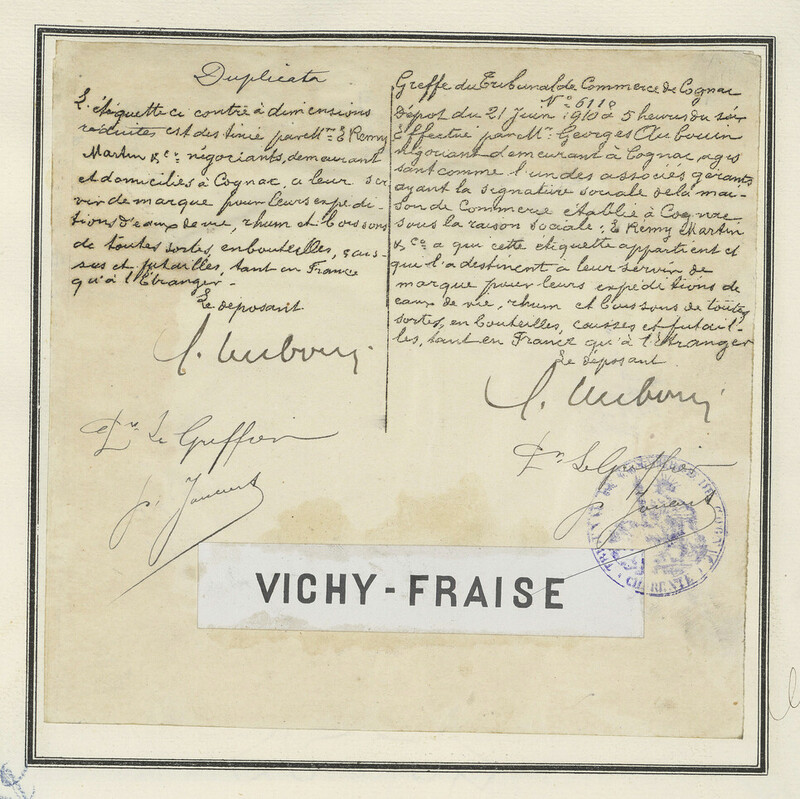 Duplicata
L'étiquette ci contre à dimensions
réduites est destinée par Mrs E Remy
Martin & Co négociants, demeurant
et domiciliés à Cognac, à leur ser
vir de marque pour leurs expédi-
tions d'eaux de vie, rhum et boissons
de toutes sortes en bouteilles, cais-
ses et futailles, tant en France
qu'à l'Etranger.
Le déposant
Le Greffier
Greffe du Tribunal de Commerce de Cognac
No 6118
Dépot du 21 Juin 1910 à 5 heures du soir
Effectué par Mr Georges Aubouin
négociant demeurant à Cognac, agis
sant comme l'un des associés gérants
ayant la signature sociale de la mai-
son de Commerce établie à Cognac
sous la raison sociale: E Remy Martin
& Co a qui cette étiquette appartient et
qui l'a destinent à leur servir de
marque pour leurs expéditions de
eaux de vie, rhum et boissons de toutes
sortes, en bouteilles, caisses et futail-
les, tant en France qu'à l'étranger
Le déposant
Le Greffier
TRIBUNAL DE COMMERCE DE COGNAC
CHARENTE
VICHY-FRAISE